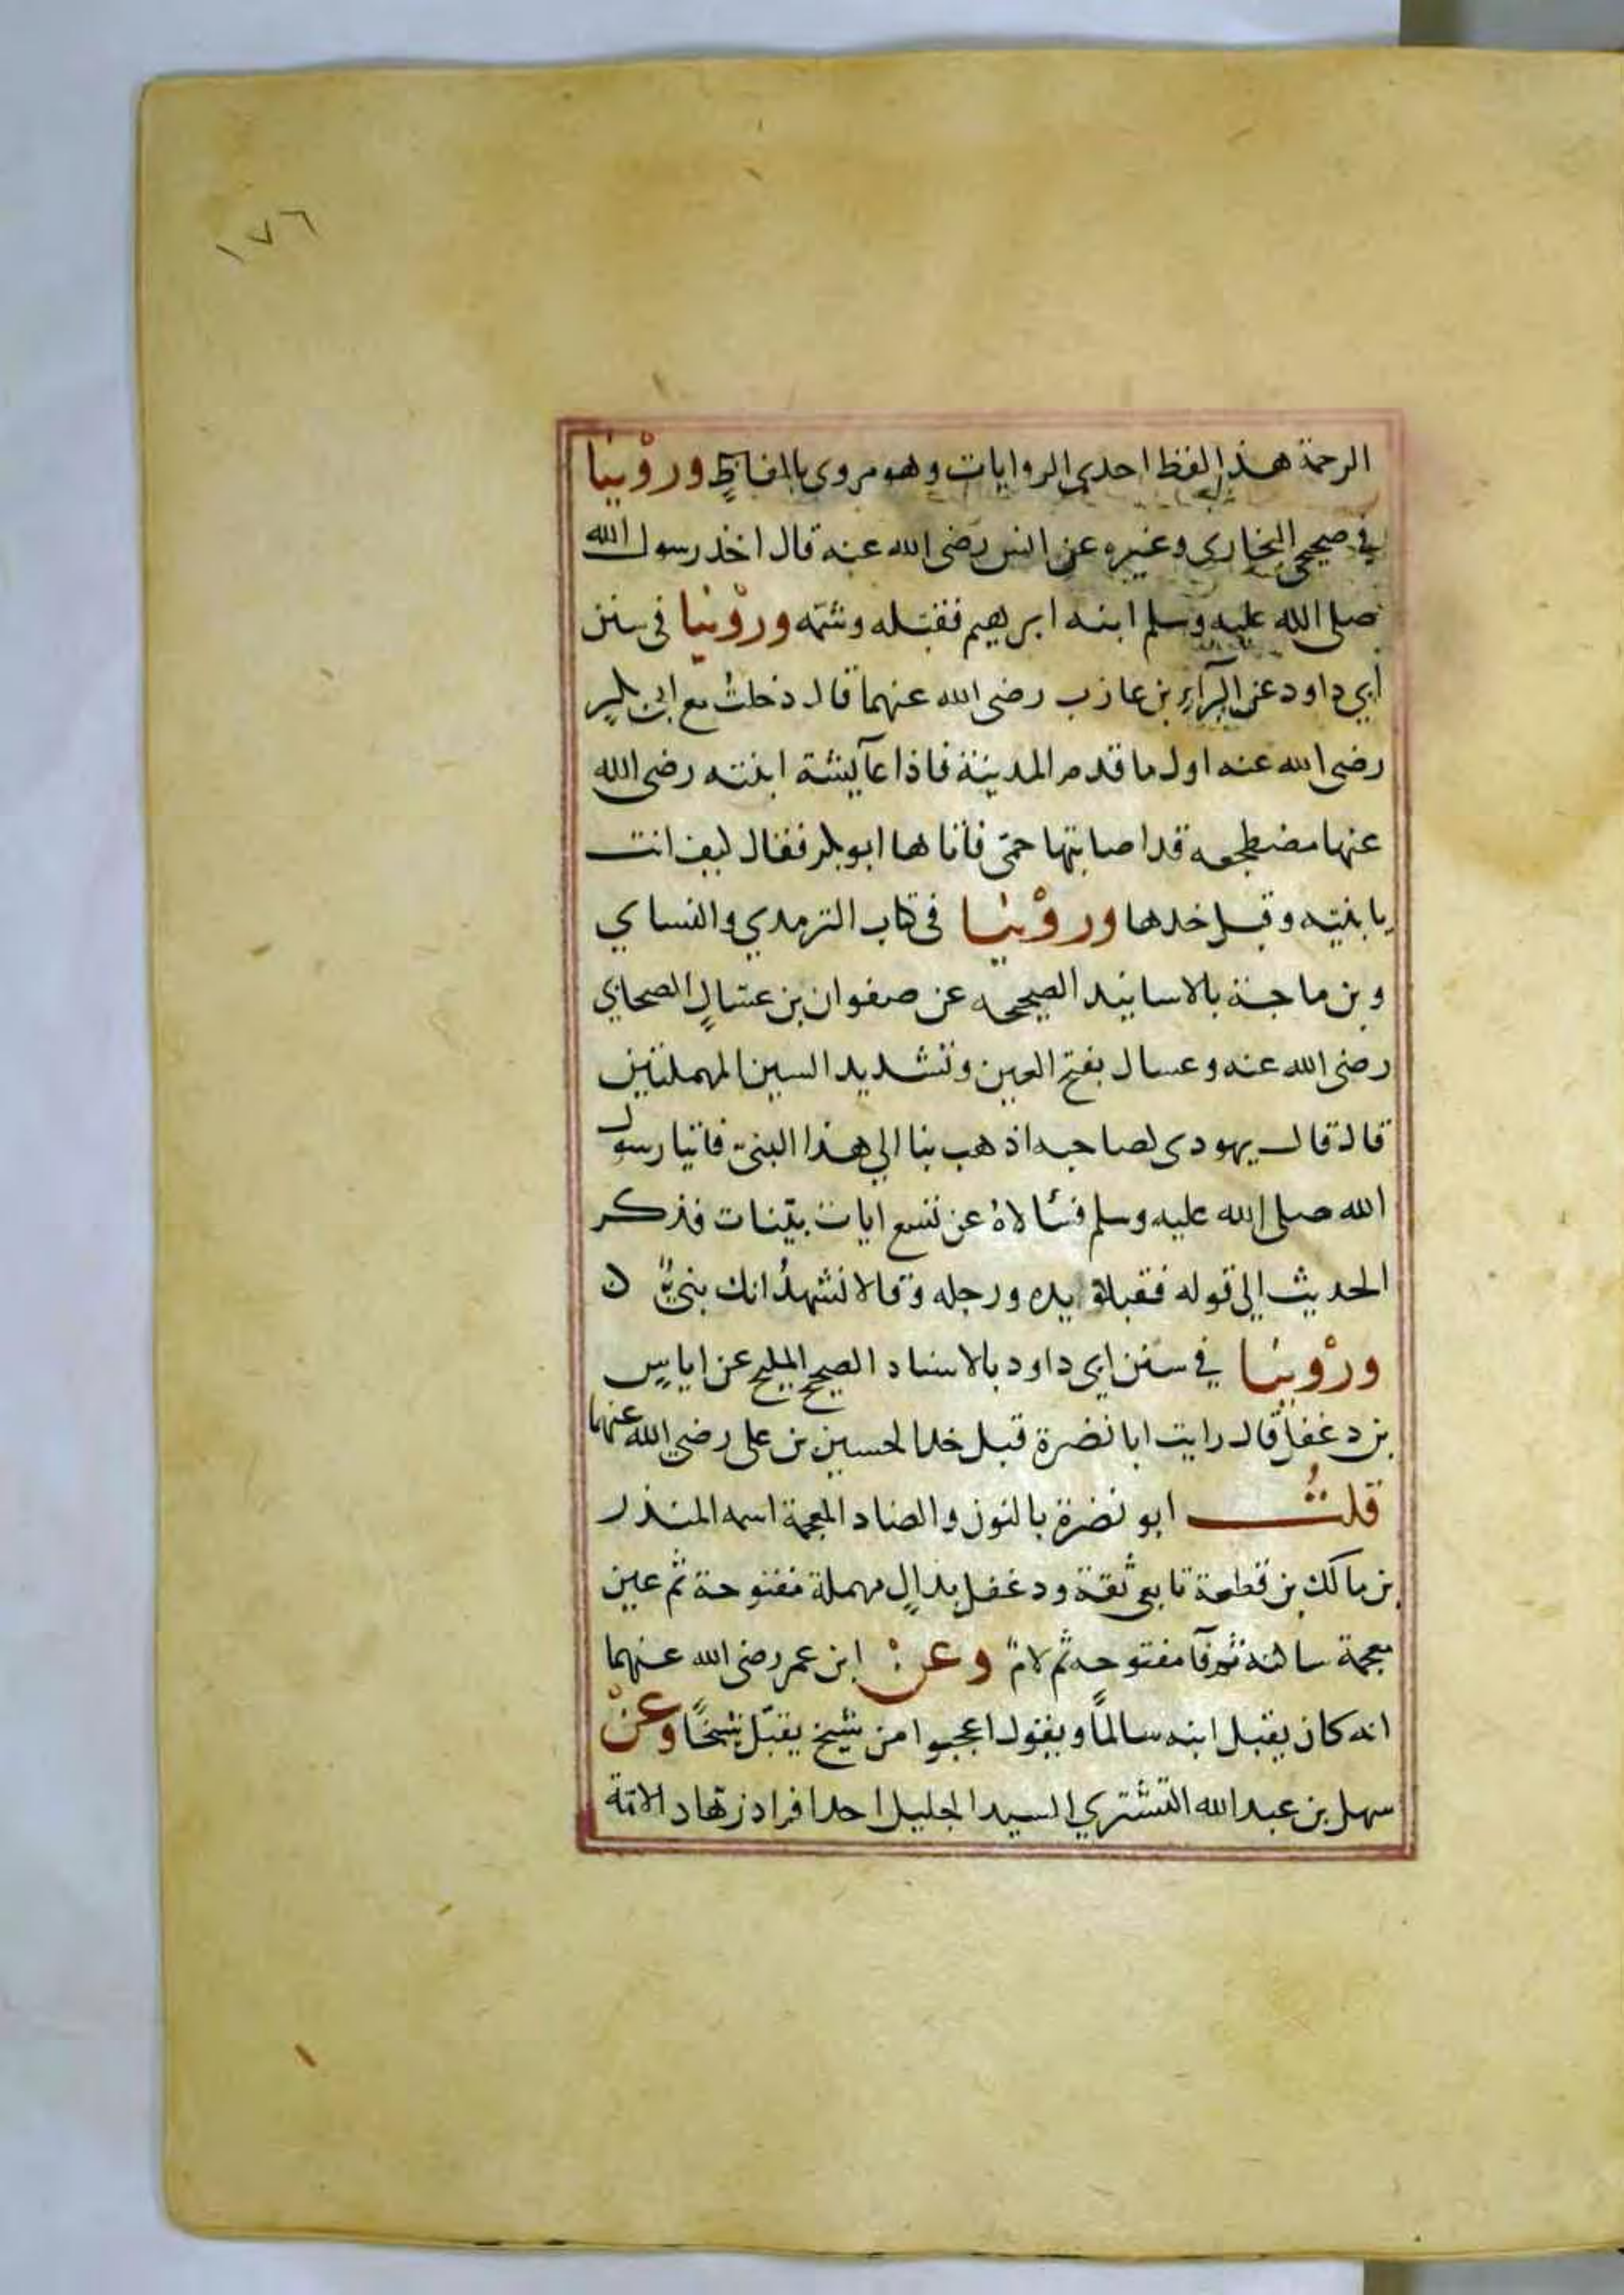 ١٧٦
الرحمة هذا لفظ احدي الروايات وهو مروي بالفاظٍ وروْينا
في صحيح البخاري وغيره عن انس رضي الله عنه قال اخذ رسول الله
صلي الله عليه وسلم ابنه ابرهيم فقبّله وشمّه وروْينا في سنن
أبي داود عن البرآءِ بن عازب رضي الله عنهما قال دخلتُ مع ابي بكرٍ
رضي الله عنه اول ما قدم المدينة فاذا عآيشة ابنته رضي الله
عنها مضطجعه قد اصابتها حمّى فأتاها ابو بكر فقال كيف انت
يا بنيّه وقبل خدها وروْينا في كتاب الترمدي والنساي
وبن ماجة بالاسانيد الصحيحه عن صفوان بن عسّالٍ الصحابي
رضي الله عنه وعسال بفتح العين وتشديد السين المهملتين
قال قال يهودي لصاحبه اذهب بنا الي هذا النبيّ فاتيا رسول
الله صلي الله عليه وسلم فسألاهُ عن تسع ايات بيّنات فذكر
الحديث إلى قوله فقبلا يده ورجله وقالا نشهدُ انك نبيٌّ ن
وروْينا في سنن ابي داود بالاسناد الصحيح المليح عن اياسٍ
بن دغفل قال رايت ابا نضرة قبل خد الحسين بن علي رضي الله عنهما
قلتُ ابو نضرة بالنون والضاد المعجمة اسمه المنذر
بن مالك بن قطعة تابعي ثقة ودغفل بدالٍ مهملة مفتوحة ثم غين
معجمة ساكنه ثم فآ مفتوحه ثم لامٌ وعن ابن عمر رضي الله عنهما
انه كان يقبل ابنه سالماً ويقول اعجبوا من شيخ يقبّل شيخاً وعنْ
سهل بن عبد الله التستري السيد الجليل احد افراد زهّاد الامّة